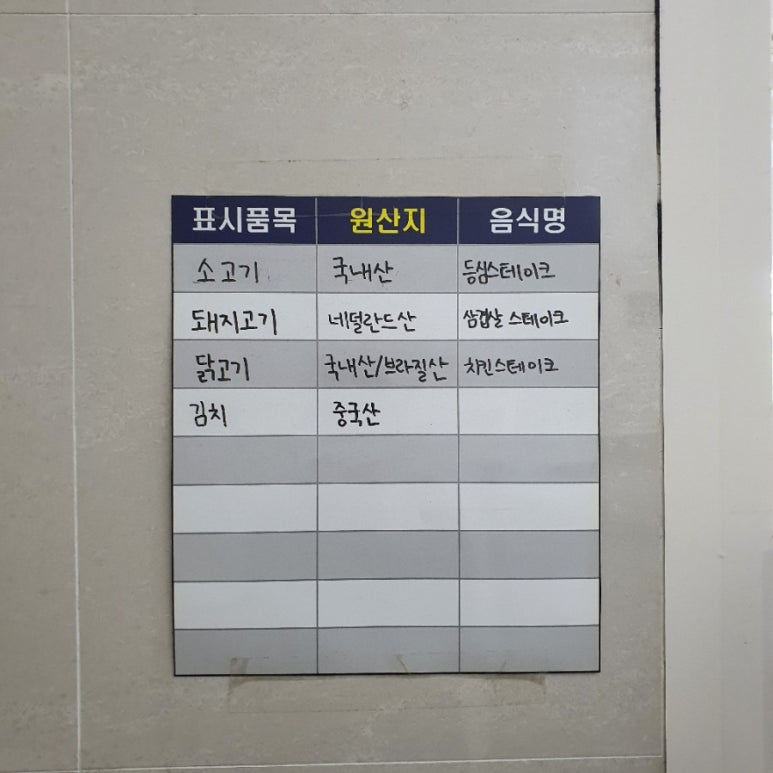 표시품목 원산지 음식명
소고기 국내산 등심스테이크
돼지고기 네덜란드산 삼겹살 스테이크
닭고기 국내산/브라질산 치킨스테이크
김치 중국산